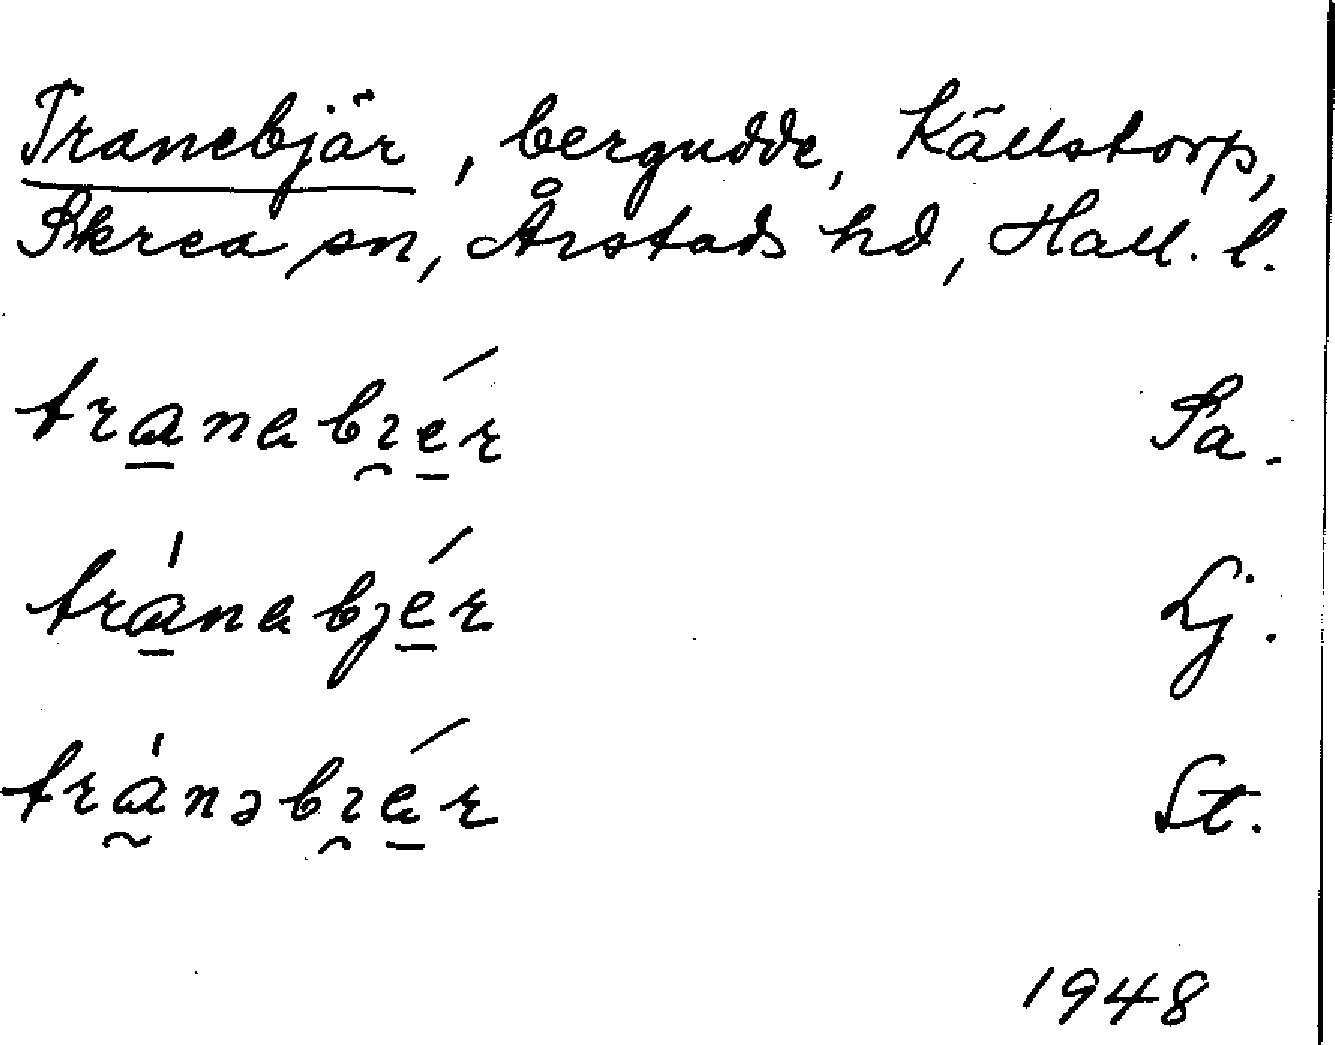 Tranebjär, bergudde, Källstorp,
Skrea sn, Årstads hd, Hall. l.
tra̲nabı̯é̲r Sa.
trá̲nabjé̲r Lj.
trá̰nəbı̯é̲r St.
1948